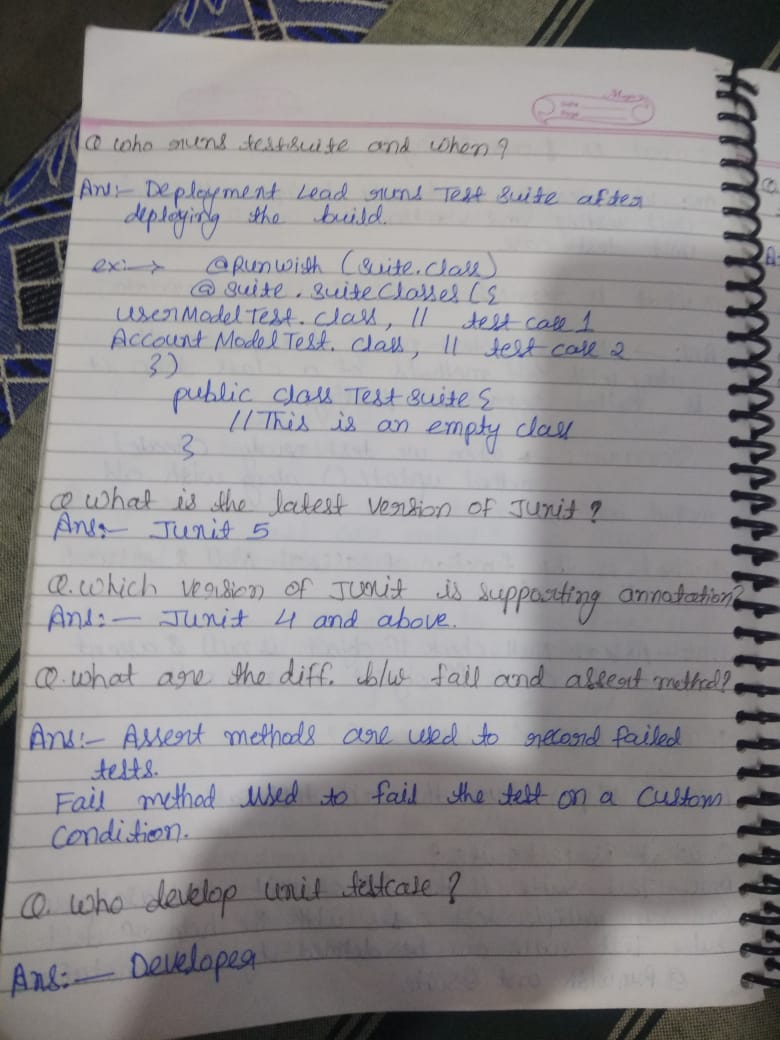 Q who runs testsuite and when?
Ans:- Deployment Lead runs Test Suite after
deploying the build.
ex:→ @RunWith (Suite.class)
@ Suite. SuiteClasses ({
UserModelTest. class, // test case 1
Account Model Test. class, // test case 2
})
public class Test Suite {
// This is an empty class
}
Q What is the latest version of Junit?
Ans:- Junit 5
Q. which version of JUnit is supporting annotation?
Ans:- Junit 4 and above.
Q. what are the diff. b/w fail and assert method?
Ans:- Assert methods are used to record failed
tests.
Fail method used to fail the test on a custom
condition.
Q. who develop unit testcase?
Ans:- Developer